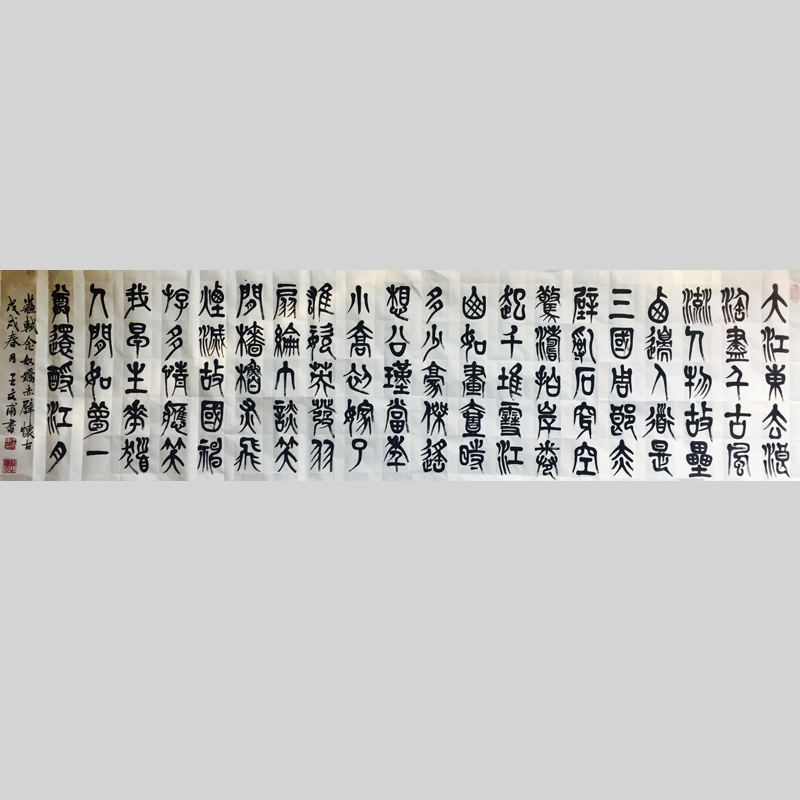 大江東去浪
淘盡千古風
流人物故壘
西邊人道是
三國周郎赤
壁亂石穿空
驚濤拍岸卷
起千堆雪江
山如畫壹時
多少豪傑遙
想公瑾當年
小喬初嫁了
雄姿英發羽
扇綸巾談笑
間檣櫓灰飛
煙滅故國神
游多情應笑
我早生華髮
人間如夢一
尊還酹江月
蘇軾念奴嬌赤壁懷古
戊戌春月